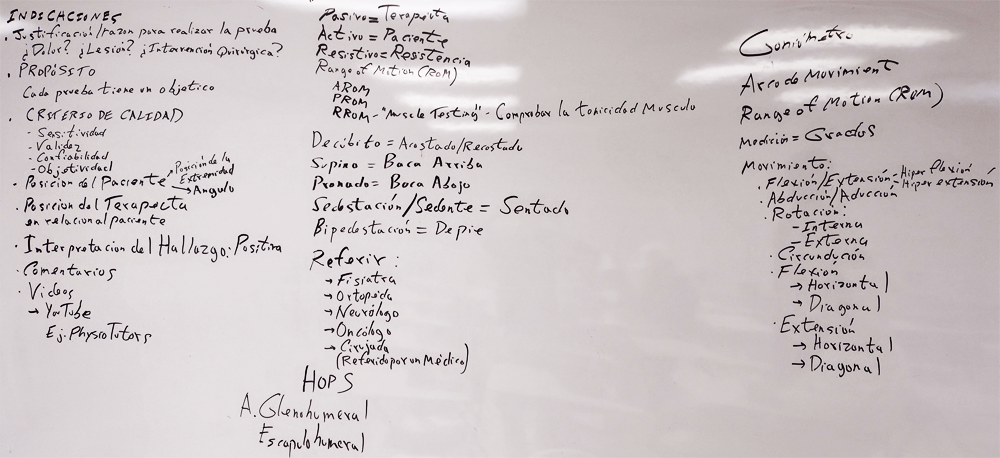 INDICACIONES
. Justificación/razon para realizar la prueba
¿Dolor? ¿Lesión? ¿Intervención Quirúrgica?
. PROPÓSITO
Cada prueba tiene un objetico
. CRITERIO DE CALIDAD
- Sensitividad
- Validez
- Confiabilidad
- Objetividad
. Posicion del Paciente → Posición de la Extremidad
→ Angulo
. Posicion del Terapecta
en relacion al paciente
. Interpretacion del Hallazgo: Positiva
. Comentarios
. Videos
→ YouTube
Ej. PhysioTutors
Pasivo = Terapecta
Activo = Paciente
Resistivo = Resistencia
Range of Motion (ROM)
AROM
PROM
RROM - "Muscle Testing" - Comprobar la tonicidad Musculo
Decúbito = Acostado/Recostado
Supino = Boca Arriba
Pronado = Boca Abajo
Sedestación/Sedente = Sentado
Bipedestación = De pie
Referir:
→ Fisiatra
→ Ortopeda
→ Neurólogo
→ Oncólogo
→ Cirujada
(Referido por un Médico)
HOPS
A. Glenohumeral
Escapulohumeral
Goniómetro
Arco do Movimient
Range of Motion (ROM)
Medición = Grados
Movimiento:
. Flexión/Extensión - Hiper flexión
Hiper extensión
. Abducción/Aducción
. Rotacion:
- Interna
- Externa
. Circundución
. Flexion
→ Horizontal
→ Diagonal
. Extensión
→ Horizontal
→ Diagonal